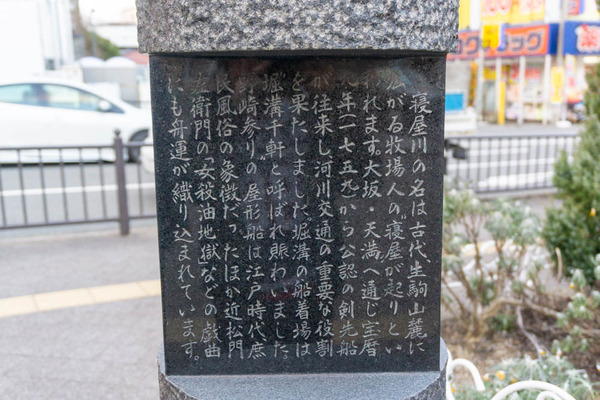 寝屋川の名は古代、生駒山麓に
広がる牧場人の“寝屋が起りとい
われます。大坂・天満へ通じ宝暦
九年（一七五九）から公認の剣先船
が往来し河川交通の重要な役割
を果たしました。堀溝の船着場は
“堀溝千軒と呼ばれ賑わいました。
野崎参りの屋形船は江戸時代庶
民風俗の象徴だったほか近松門
左衛門の「女殺油地獄」などの戯曲
にも舟運が織り込まれています。